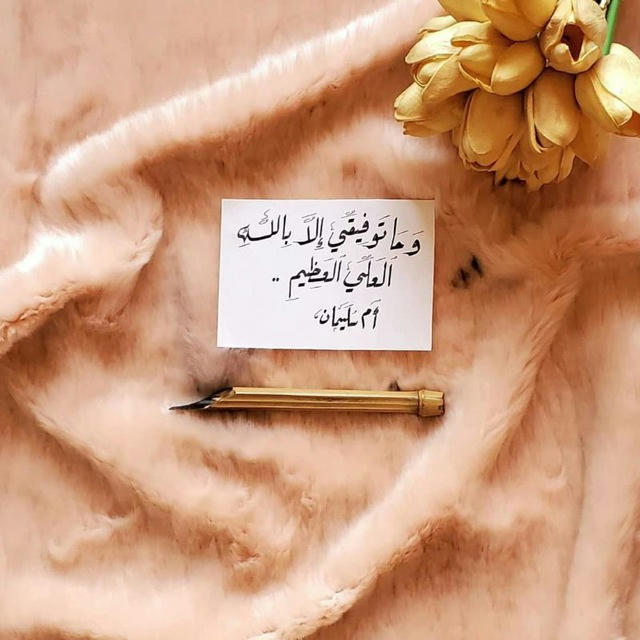 وَمَا تَوفِيقِي إِلَّا بِاللَّهِ
العَلِيِّ العَظِيمِ ..
أم سليمان